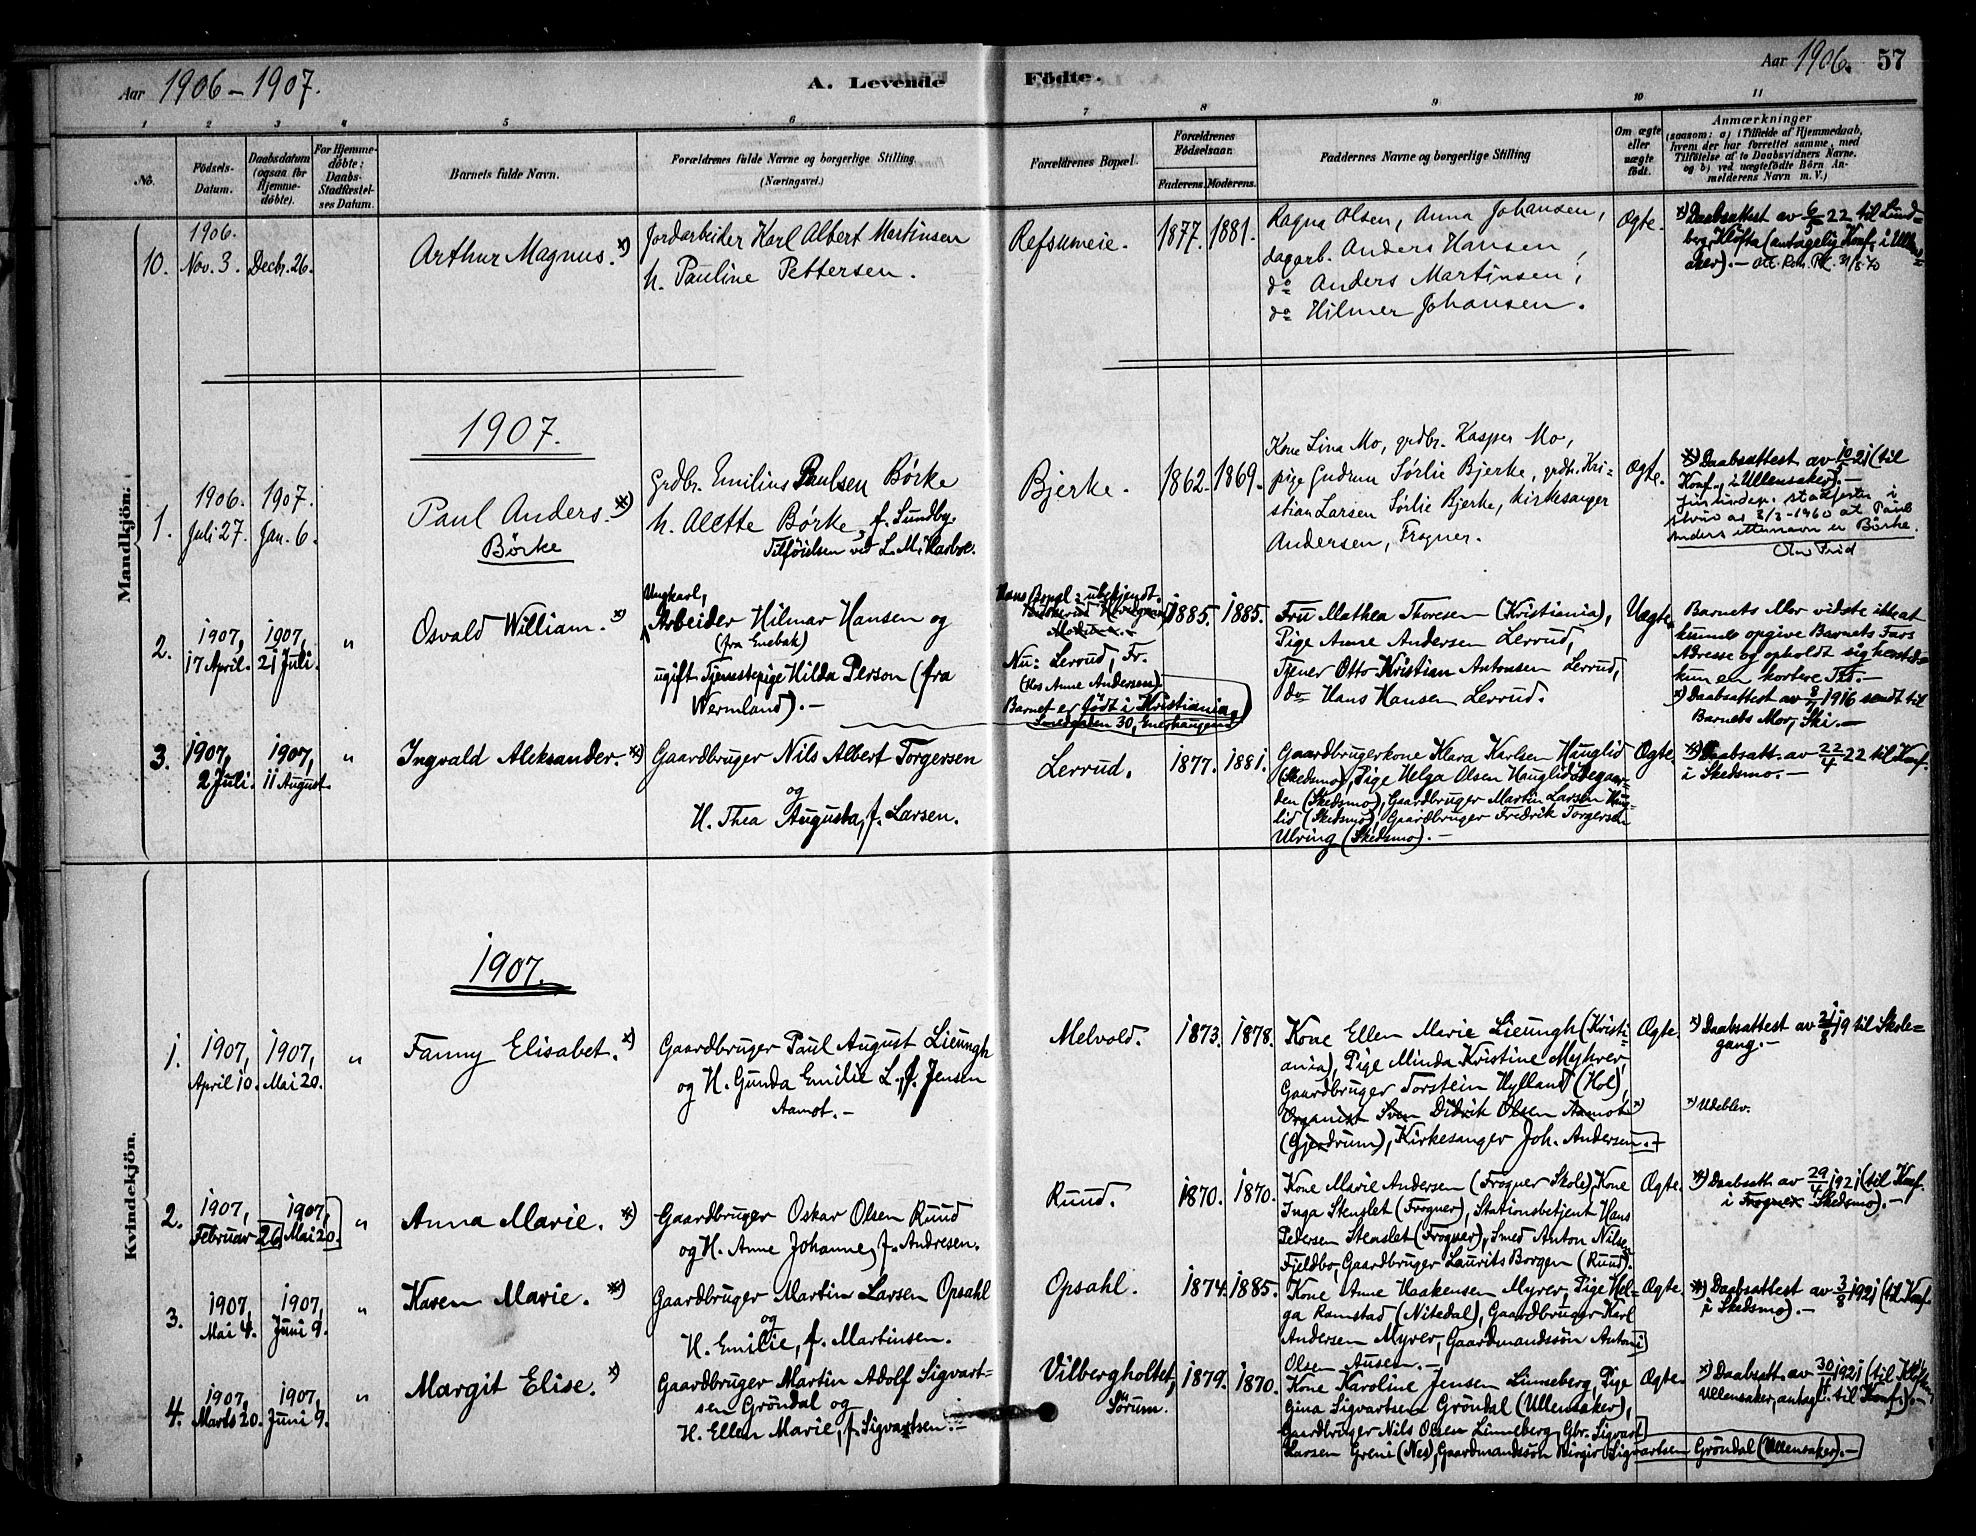 Aar 1906-1907.
A. Levende
Födte.
Aar 1906. 57
1 2 3 4 5 6 7 8 9 10 11
No.
Födsels-
Datum.
Daabsdatum
(ogsaa for
Hjemme-
døbte).
For Hjemme-
døbte:
Daabs-
Stadfæstel-
ses Datum.
Barnets fulde Navn.
Forældrenes fulde Navne og borgerlige Stilling
(Næringsvei.)
Forældrenes Bopæl.
Forældrenes
Födselsaar.
Faderens. Moderens.
Faddernes Navne og borgerlige Stilling
Om ægte
eller
uægte
født.
Anmærkninger
(saasom: a) i Tilfælde af Hjemmedaab,
hvem der har forrettet samme, med
Tilföielse af to Daabsvidners Navne.
og b) ved uægtefödte Börn An-
melderens Navn m. V.)
Mandkjön.
10.
1906.
Nov. 3.
Decbr. 26.
Arthur Magnus. x)
Jordarbeider Karl Albert Martinsen
h. Pauline Pettersen.
Refsumeie.
1877. 1881.
Ragna Olsen, Anna Johansen,
dagarb. Anders Hansen,
do Anders Martinsen,
do Hilmer Johansen.
Ægte.
x) Daabsattest av 6/5 22 til Lund-
berg, Kløfta (antagelig Konf. i Ullens-
aker).-
1907.
1.
1906.
Juli 27.
1907.
Jan. 6.
Paul Anders. x)
Börke
Grdbr. Emilius Paulsen Börke
h. Alette Börke, f. Sundby.
Tilföielsen ved L. M.
Bjerke.
1862. 1869.
Kone Lina Mo, grdbr. Kasper Mo,
pige Gudrun Sørlie Bjerke, grdbr. Kri-
stian Larsen Sørlie Bjerke, kirkesanger
Andersen, Frogner.
Ægte.
x) Daabsattest av 10/5 21 (til
Konf. i Ullensaker).-
2.
1907,
17 April.
1907,
21 Juli.
"
Osvald William. x)
Ungkarl,
Arbeider Hilmar Hansen og
(fra Enebak)
ugift Tjenestepige Hilda Person (fra
Wermland).-
Hans Bopæl: ubekjendt.
Nu: Lerrud, Fr.
(Hos Anne Andersen)
Barnet er født i Kristiania,
Smedgaden 30, Enerhaugen
1885. 1885.
Fru Mathea Thoresen (Kristiania),
Pige Anne Andersen Lerrud,
Tjener Otto Kristian Antonsen Lerrud,
do Hans Hansen Lerrud.
Uægte.
Barnets Mor vidste ikke at
kunne opgive Barnets Fars
Adresse og opholdt sig herstede
kun en kortere Tid.-
x) Daabsattest av 8/7 1916 sendt til
Barnets Mor, Ski.-
3.
1907,
2 Juli.
1907,
11 August.
"
Ingvald Aleksander. x)
Gaardbruger Nils Albert Torgersen
og
H. Thea Augusta, f. Larsen.
Lerrud.
1877. 1881.
Gaardbrugerkone Klara Karlsen Hauglid
(Skedsmo), Pige Helga Olsen Hauglid Ødegaar-
den (Skedsmo), Gaardbruger Martin Larsen Haug-
lid (Skedsmo), Gaardbruger Fredrik Torgersen
Ulvring (Skedsmo).-
Ægte
x) Daabsatt. av 22/4 22 til Konf.
i Skedsmo.-
Kvindekjön.
1907.
1.
1907,
April 10.
1907,
Mai 20.
"
Fanny Elisabet. x)
Gaardbruger Paul August Lieungh
og H. Gunda Emilie L., f. Jensen
Aamot.-
Melvold.
1873. 1878.
Kone Ellen Marie Lieungh (Kristi-
ania), Pige Minda Kristine Myhrer,
Gaardbruger Torstein Hylland (Hol),
Organist Sven Didrik Olsen Aamot x)
(Gjerdrum), Kirkesanger Joh. Andersen.-
Ægte.
x) Daabsattest av 21/8 19 til Skole-
gang.-
x) Udeblev.
2.
1907,
Februar 26
1907,
Mai 20.
"
Anna Marie. x)
Gaardbruger Oskar Olsen Ruud
og H. Anne Johanne, f. Andresen.
Ruud.
1870. 1870.
Kone Marie Andersen (Frogner Skole), Kone
Inga Stenslet (Frogner), Stationsbetjent Hans
Pedersen Stenslet (Frogner), Smed Anton Nilsen
Fjeldbo, Gaardbruger Laurits Borgen (Ruud).
Ægte.
x) Daabsatt. av 29/4 1921 (til Konf.
i Frogner Skedsmo).-
3.
1907,
Mai 4.
1907,
Juni 9.
"
Karen Marie. x)
Gaardbruger Martin Larsen Opsahl
og
H. Emilie, f. Martinsen.
Opsahl.
1874. 1885.
Kone Anne Haakensen Myrer, Pige Hel-
ga Ramstad (Nitedal), Gaardbruger Karl
Andersen Myrer, Gaardmandssön Anton
Olsen Ausen.-
Ægte.
x) Daabsattest av 3/8 1921 (til Konf.
i Skedsmo).-
4.
1907,
Marts 20.
1907,
Juni 9.
"
Margit Elise. x)
Gaardbruger Martin Adolf Sigvart-
sen Gröndal og
H. Ellen Marie, f. Sigvartsen.-
Vilbergholtet,
Sörum.
1879. 1870.
Kone Karoline Jensen Linneberg, Pige
Gina Sigvartsen Gröndal (Ullensaker),
Gaardbruger Nils Olsen Linneberg, Gbr. Sigvart
Larsen Greni (Nes), Gaardmandssön Birger Sigvartsen Gröndal (Ullensaker).-
Ægte.
x) Daabsatt. av 30/4 1921 (til Kløften
Ullensaker, antagl. til Konf.).-